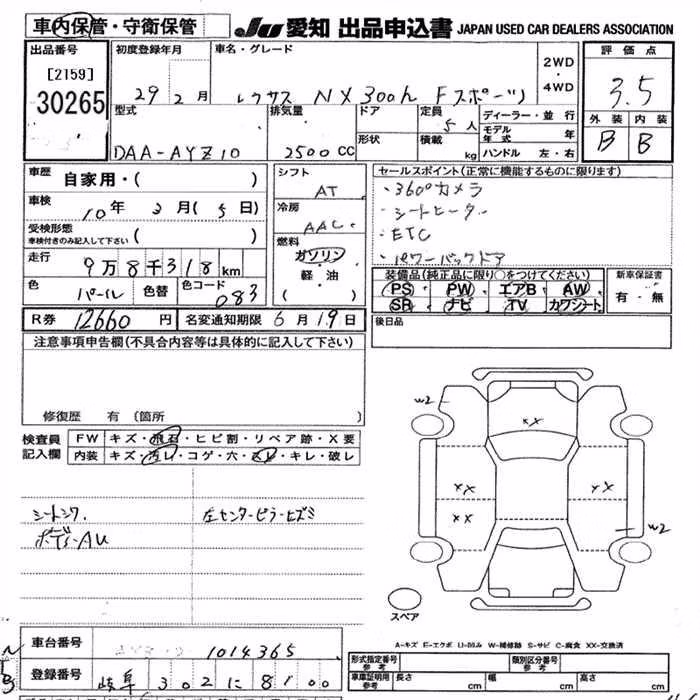 車内保管・守衛保管 JU 愛知 出品申込書 JAPAN USED CAR DEALERS ASSOCIATION
出品番号 初度登録年月 車名・グレード 2WD・4WD 評価点
[2159]
30265 29年2月 レクサス NX300h Fスポーツ 3.5
型式 排気量 ドア 定員 5人 ディーラー・並行 外装 内装
形状 積載 kg モデル年式 年
DAA-AYZ10 2500CC ハンドル 左・右 B B
車歴 自家用・( ) シフト AT セールスポイント(正常に機能するものに限ります)
車検 10年2月(5日) 冷房 AAC ・360°カメラ
・シートヒーター
受検形態 車検付きのみ記入して下さい ( ) 燃料 ・ETC
走行 9万8千318km ガソリン ・パワーバックドア
軽・油
( )
色 パール 色替 色コード 083 装備品(純正品に限り○をつけてください) 新車保証書
PS・PW・エアB・AW 有・無
SR・ナビ・TV・カワシート
R券 12660円 名変通知期限 6月19日 後日品
注意事項申告欄(不具合内容等は具体的に記入して下さい)
修復歴 有 (箇所 )
検査員記入欄 FW キズ・飛石・ヒビ割・リペア跡・X要
内装 キズ・汚レ・コゲ・穴・スレ・キレ・破レ
シートシワ 左センターピラーヒズミ
ボデーAU
W2
XX
XX XX
XX
W2
スペア
A-キズ E-エクボ U-凹み W-補修跡 S-サビ C-腐食 XX-交換済
車台番号 1014365
登録番号 岐阜 302 に 8100
形式指定番号 参考 類別区分番号 参考
車庫証明用 参考 長さ cm 幅 cm 高さ cm